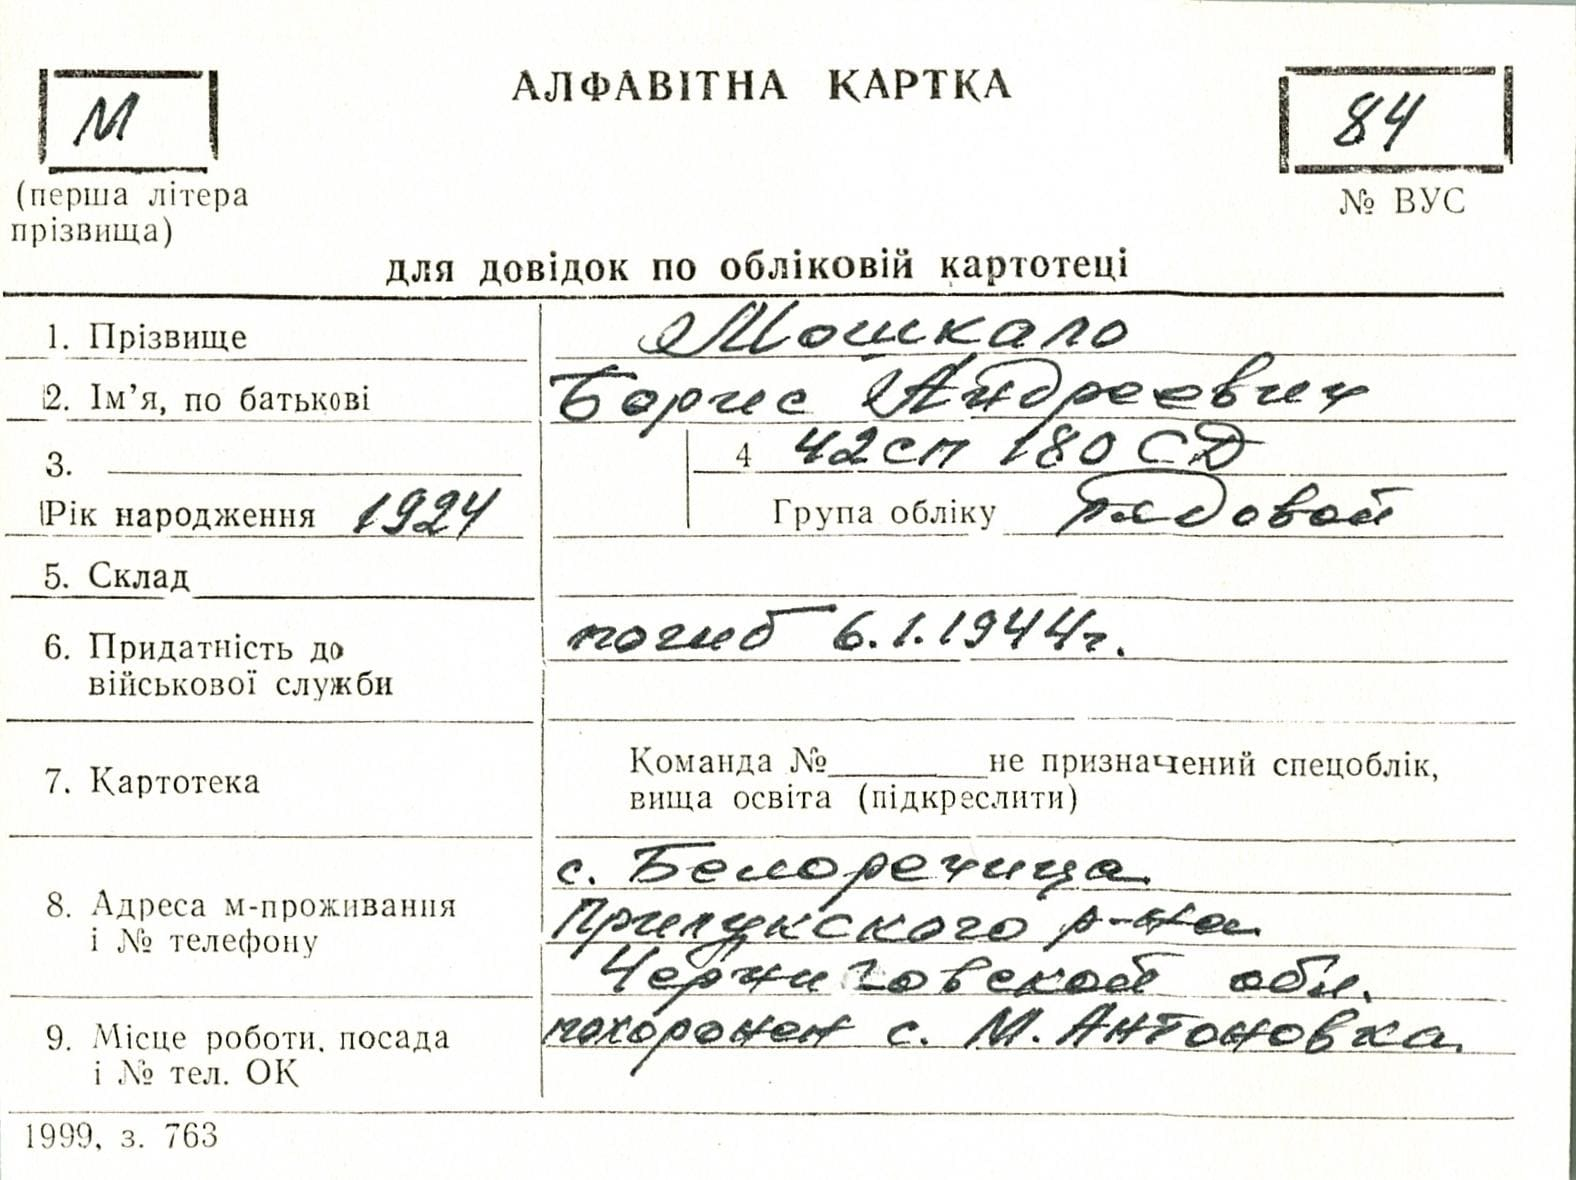 АЛФАВІТНА КАРТКА
М
84
(перша літера
прізвища)
№ ВУС
для довідок по обліковій картотеці
1. Прізвище Мошкало
2. Ім’я, по батькові Борис Андреевич
3. 4 42 сп 180 СД
Рік народження 1924 Група обліку рядовой
5. Склад
6. Придатність до
військової служби
погиб 6.1.1944 г.
7. Картотека
Команда № не призначений спецоблік,
вища освіта (підкреслити)
8. Адреса м-проживання
і № телефону
с. Белоречица
Прилукского р-на
Черниговской обл.
9. Місце роботи, посада
і № тел. ОК
похоронен с. М. Антоновка
1999, з. 763